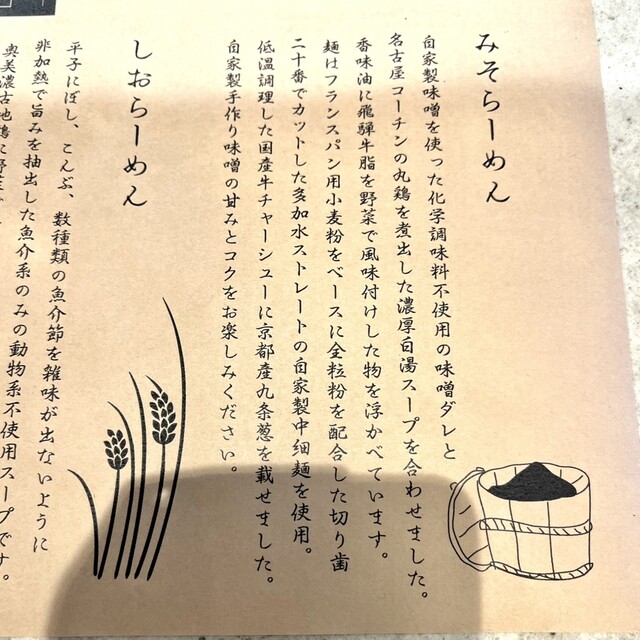 みそらーめん
自家製味噌を使った化学調味料不使用の味噌ダレと
名古屋コーチンの丸鶏を煮出した濃厚白湯スープを合わせました。
香味油に飛騨牛脂を野菜で風味付けした物を浮かべています。
麺はフランスパン用小麦粉をベースに全粒粉を配合した切り歯
二十番でカットした多加水ストレートの自家製中細麺を使用。
低温調理した国産牛チャーシューに京都産九条葱を載せました。
自家製手作り味噌の甘みとコクをお楽しみください。
しおらーめん
平子にぼし、こんぶ、数種類の魚介節を雑味が出ないように
非加熱で旨みを抽出した魚介系のみの動物系不使用スープです。
奥美濃古地鶏に野菜